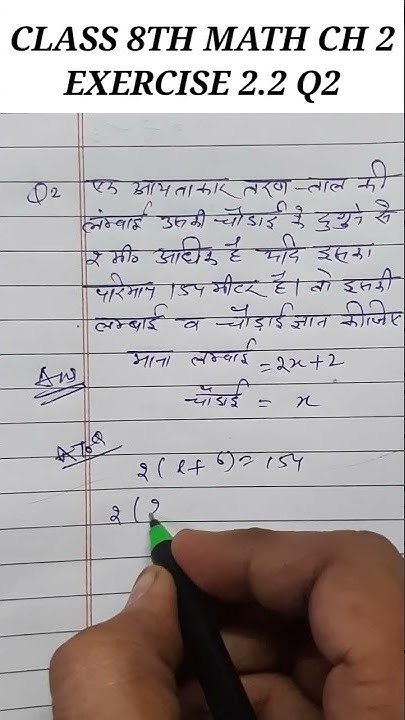 CLASS 8TH MATH CH 2
EXERCISE 2.2 Q2
Q2 एक आयताकार तरण-ताल की
लंम्बाई उसकी चौडाई के दुगुने से
2 मी० अधिक है यदि इसका
परिमाप 154 मीटर है। तो इसकी
लम्बाई व चौड़ाई ज्ञात कीजिए
माना लम्बाई = 2x+2
Ans
चौडाई = x
A.T.Q
2(l+b) = 154
2(2